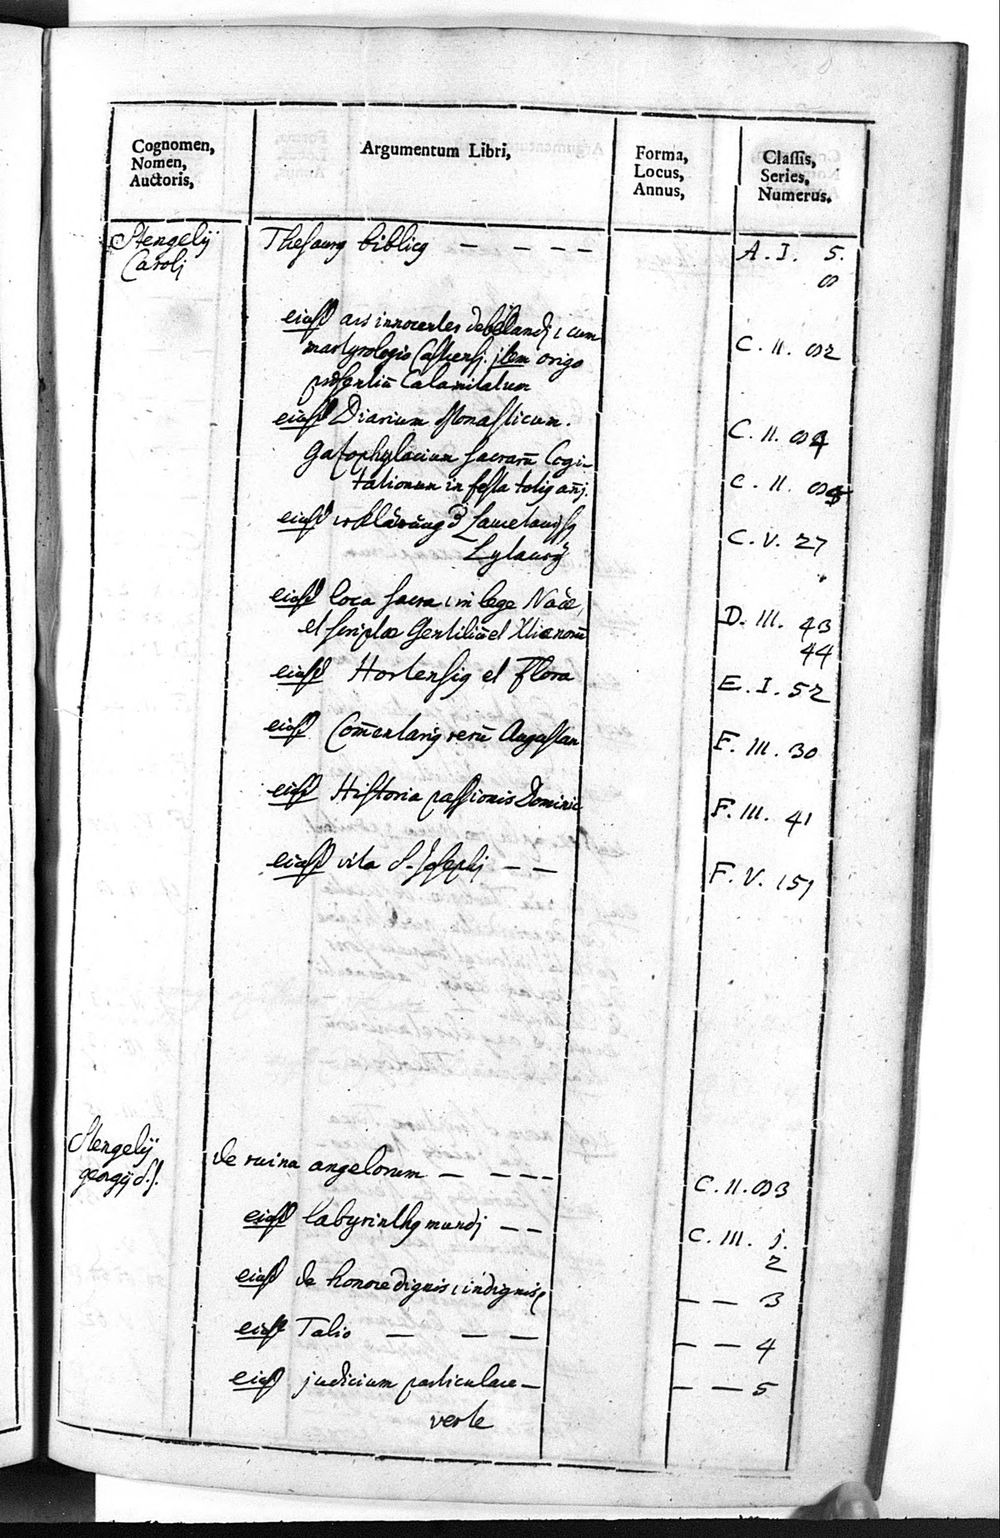 Cognomen,
Nomen,
Auctoris,
Argumentum Libri,
Forma,
Locus,
Annus,
Classis,
Series,
Numerus.
Stengelij
Caroli
Thesaurg biblicg — — — — A. I. 5.
8
eiusd ars innocentes debelandi, cum
martyrologio Castrensi. item origo C. II. 82
præsentiū Calamitatum
eiusd Diarium Monasticum. C. II. 84
Gazophylacium sacrarū Cogi-
tationum in festa totig añi. C. II. 85
eiusd erklärung d
Lytaney C. V. 27
eiusd loca sacra in lege Naae, D. III. 43
et scriptæ Gentiliū et Xtianorū 44
eiusd Hortensig et Flora E. I. 52
eiusd Com̄entarig rerū Augustan F. III. 30
eiusd Historia passionis Dominic F. III. 41
eiusd vita S. Josephi — — F. V. 151
Stengelij
georgij S. J.
de ruina angelorum — — — — C. II. 83
eiusd labyrinthg mundi — — C. III. j.
2
eiusd de honore dignis, indignisq — — 3
eiusd Talio — — — — — 4
eiusd judicium particulare — — — 5
verte